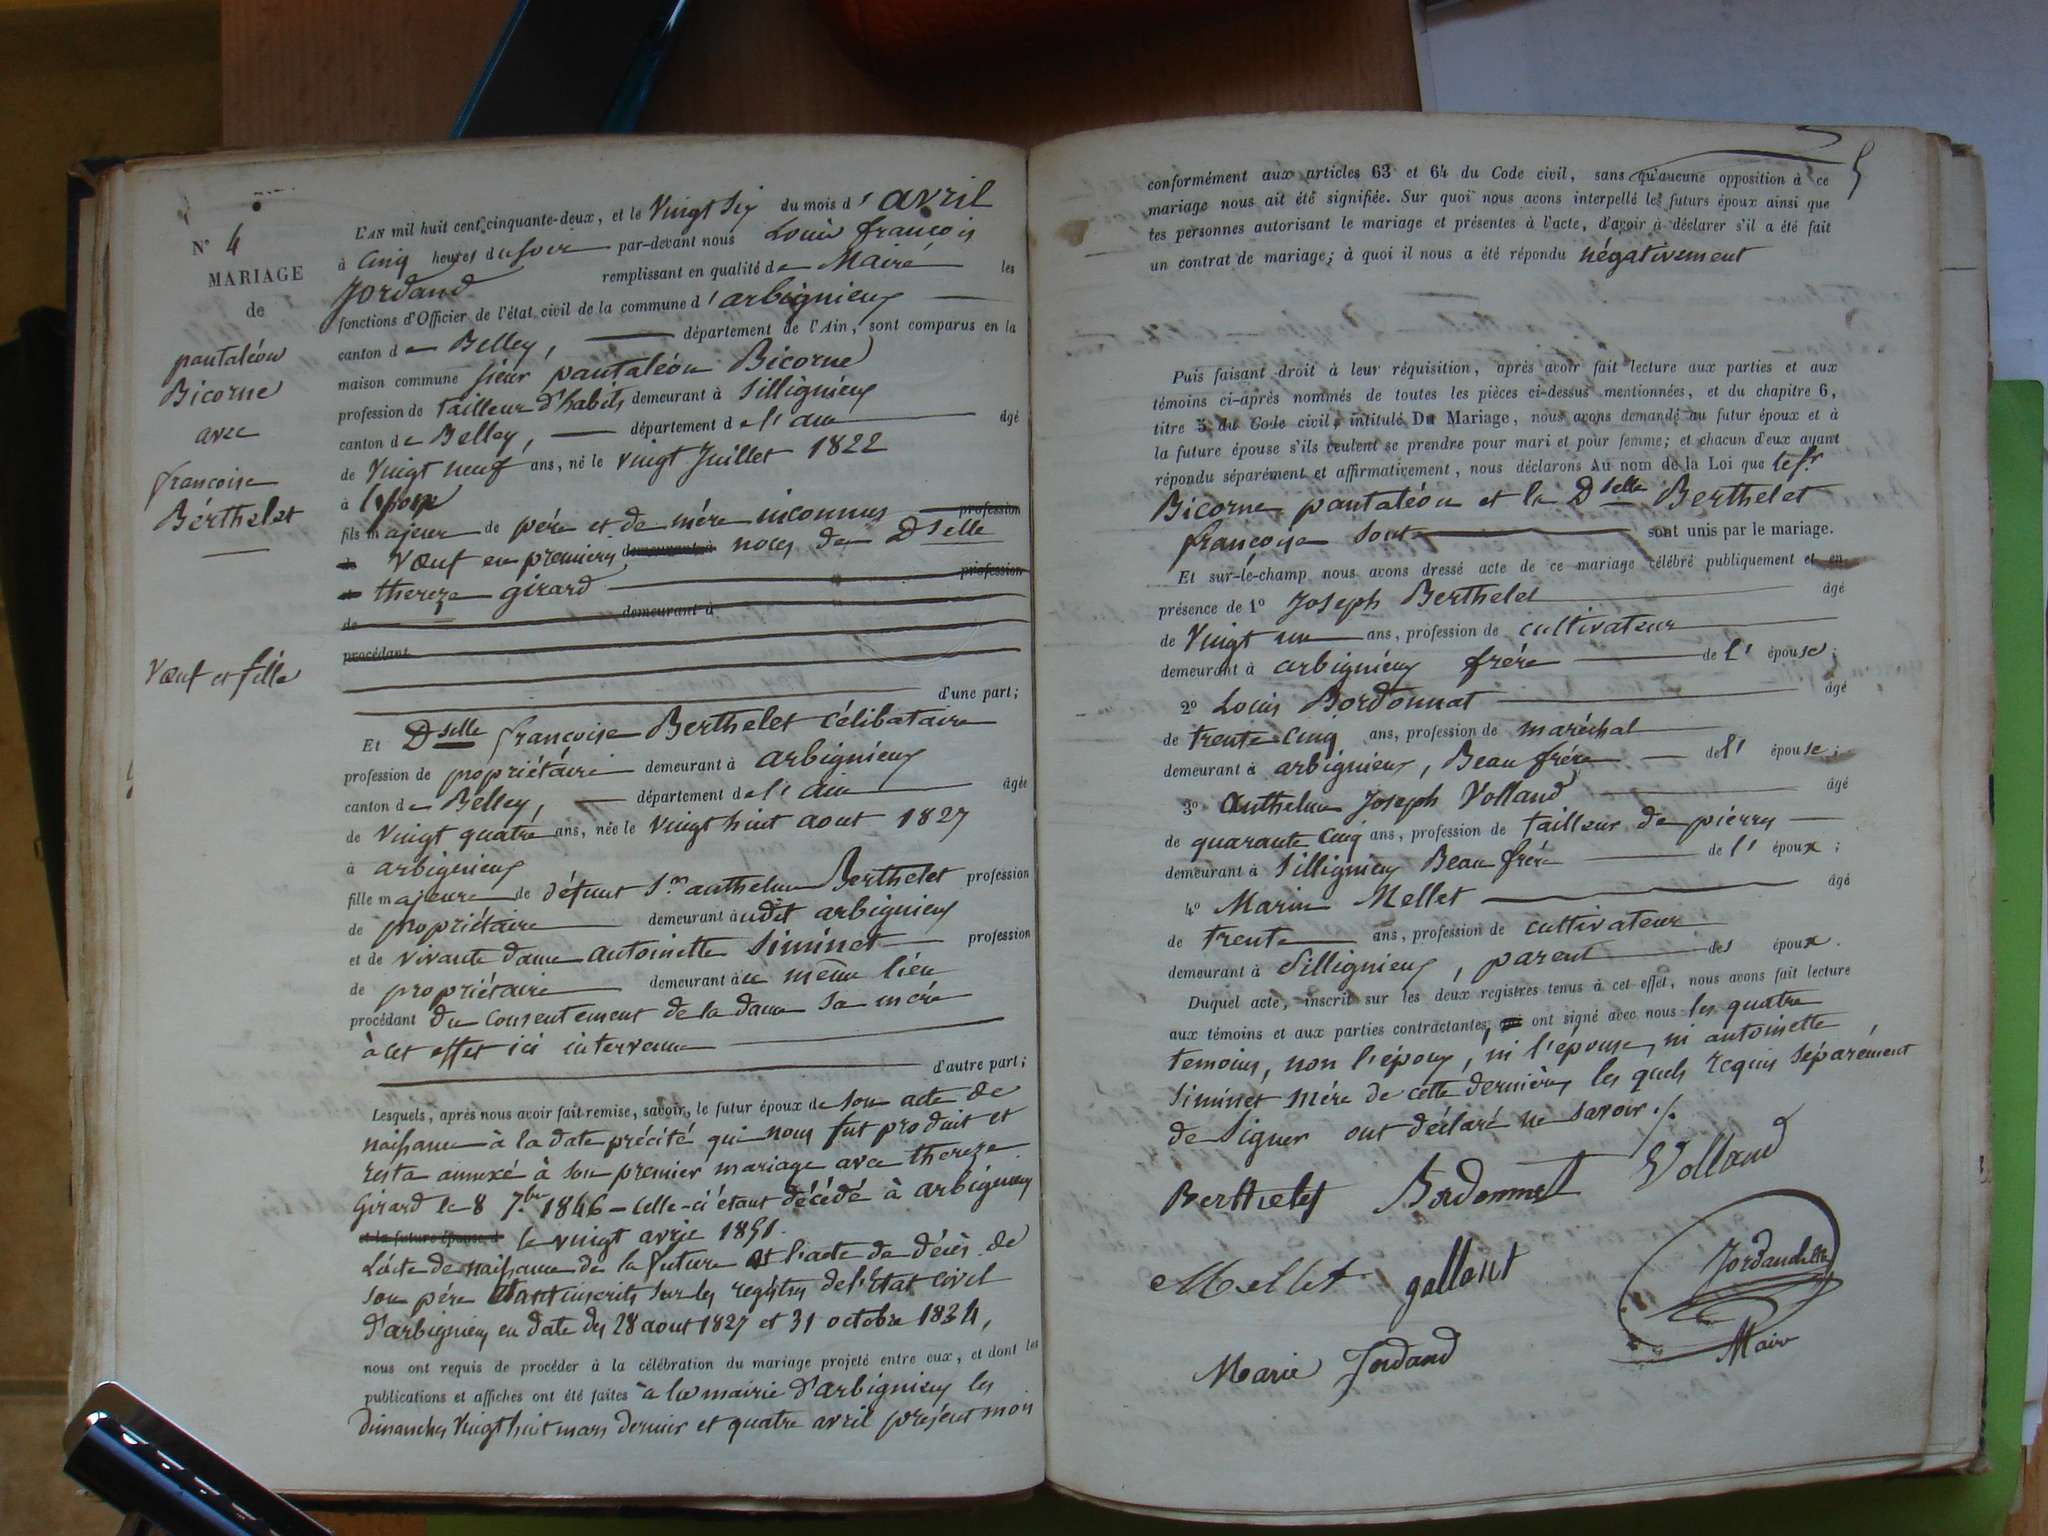 N° 4
MARIAGE
de
pantaléon
Bicorne
avec
francoise
Bérthelet
Vœuf et fille
L'AN mil huit cent cinquante-deux, et le Vingt Six du mois d' avril
à Cinq heures du soir par-devant nous Louis françois
Jordand remplissant en qualité de Maire les
fonctions d'Officier de l'état civil de la commune d'arbignieux
canton de Belley, département de l'Ain, sont comparus en la
maison commune sieur pantaléon Bicorne
profession de tailleur d'habits demeurant à Sillignieux
canton de Belley, département de l'ain âgé
de Vingt neuf ans, né le vingt Juillet 1822
à
fils majeur de pére et de mére inconnus profession
de Vœuf en premiers demeurant à noces de Dselle
de thereze girard profession
de demeurant à
procédant
d'une part;
Et Dselle françoise Berthelet célibataire
profession de propriétaire demeurant à arbignieux
canton de Belley, département de l'ain âgée
de Vingt quatre ans, née le Vingt huit aout 1827
à arbignieux
fille majeure de défunt Sr anthelme Berthelet profession
de propriétaire demeurant audit arbignieux
et de vivante dame antoinette Siminet profession
de propriétaire demeurant à ce même lieu
procédant du consentement de la dame sa mére
à cet effet ici intervenue
d'autre part;
Lesquels, après nous avoir fait remise, savoir, le futur époux de son acte de
naissance à la date précité qui nous fut produit et
resta annexé à son premier mariage avec thereze
Girard le 8 7bre 1846 – celle-ci étant décédé à arbignieux
et la future épouse d le vingt avril 1851.
L'acte de naissance de la future et l'acte de décès de
son pére étant inscrits sur les registres de l'Etat civil
d'arbignieux en date des 28 aout 1827 et 31 octobre 1834,
nous ont requis de procéder à la célébration du mariage projeté entre eux, et dont les
publications et affiches ont été faites à la mairie d'arbignieux les
dimanches Vingt huit mars dernier et quatre avril présent mois
5
conformément aux articles 63 et 64 du Code civil, sans qu'aucune opposition à ce
mariage nous ait été signifiée. Sur quoi nous avons interpellé les futurs époux ainsi que
les personnes autorisant le mariage et présentes à l'acte, d'avoir à déclarer s'il a été fait
un contrat de mariage; à quoi il nous a été répondu négativement
Puis faisant droit à leur réquisition, après avoir fait lecture aux parties et aux
témoins ci-après nommés de toutes les pièces ci-dessus mentionnées, et du chapitre 6,
titre 5 du Code civil, intitulé Du Mariage, nous avons demandé au futur époux et à
la future épouse s'ils veulent se prendre pour mari et pour femme; et chacun d'eux ayant
répondu séparément et affirmativement, nous déclarons Au nom de la Loi que le sr
Bicorne pantaléon et la Dselle Berthelet
françoise sont sont unis par le mariage.
Et sur-le-champ nous avons dressé acte de ce mariage célébré publiquement et en
présence de 1° Joseph Berthelet âgé
de Vingt un ans, profession de cultivateur
demeurant à arbignieux frére de l' épouse;
2° Louis Bordonnat âgé
de trente cinq ans, profession de maréchal
demeurant à arbignieux, Beau frére de l' épouse;
3° Anthelme Joseph Volland âgé
de quarante cinq ans, profession de tailleur de pierres
demeurant à Sillignieux Beau frére de l' époux;
4° Marin Mellet âgé
de trente ans, profession de cultivateur
demeurant à Sillignieux, parent des époux.
Duquel acte, inscrit sur les deux registres tenus à cet effet, nous avons fait lecture
aux témoins et aux parties contractantes, qui ont signé avec nous les quatre
temoins, non l'époux, ni l'epouse, ni antoinette
Siminet mére de cette derniére, les quels requis séparément
de Signer ont déclaré ne savoir ./.
Berthelet Bordonnat Volland
Mellet gallont
Marie Jordand
Maire